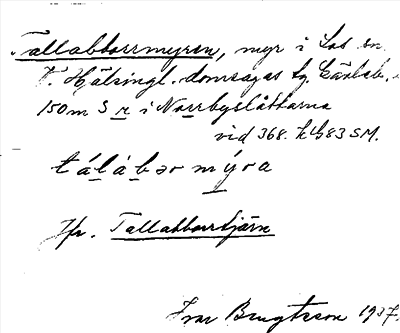 Tallabborrmyren, myr i Los sn
V. Hälsingl. domsagas tg, Gävleb.
150 m S r i Norrbyslåttarna
vid 368. k 4683 SM.
tálábər mýra
Jfr. Tallabborrtjärn
Ivar Bengtsson 1937.